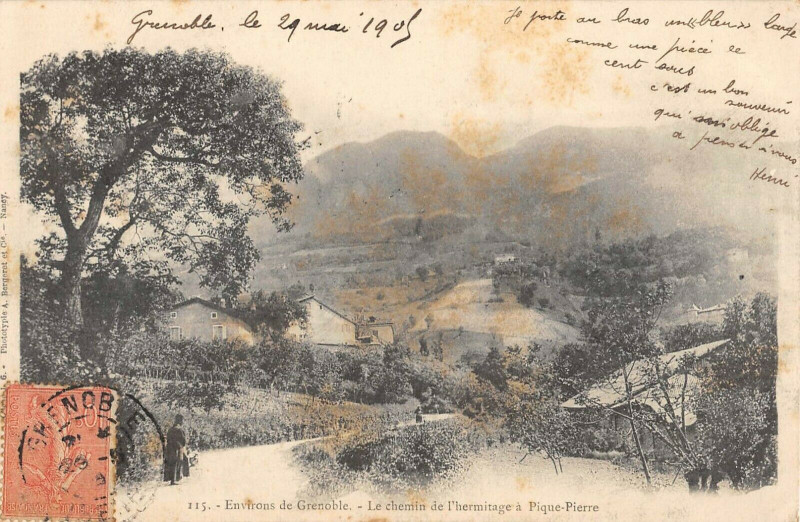 Grenoble, le 29 mai 1905
Je porte au bras un «bleu» large
comme une pièce de
cent sous
c'est un bon
souvenir
qui m'oblige
a penser à vous
Henri
Phototypie A. Bergeret et Cie. — Nancy.
GRENOBLE
115. - Environs de Grenoble. - Le chemin de l'hermitage à Pique-Pierre